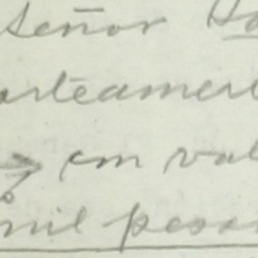 Señor
arteament
en val
mil pesos